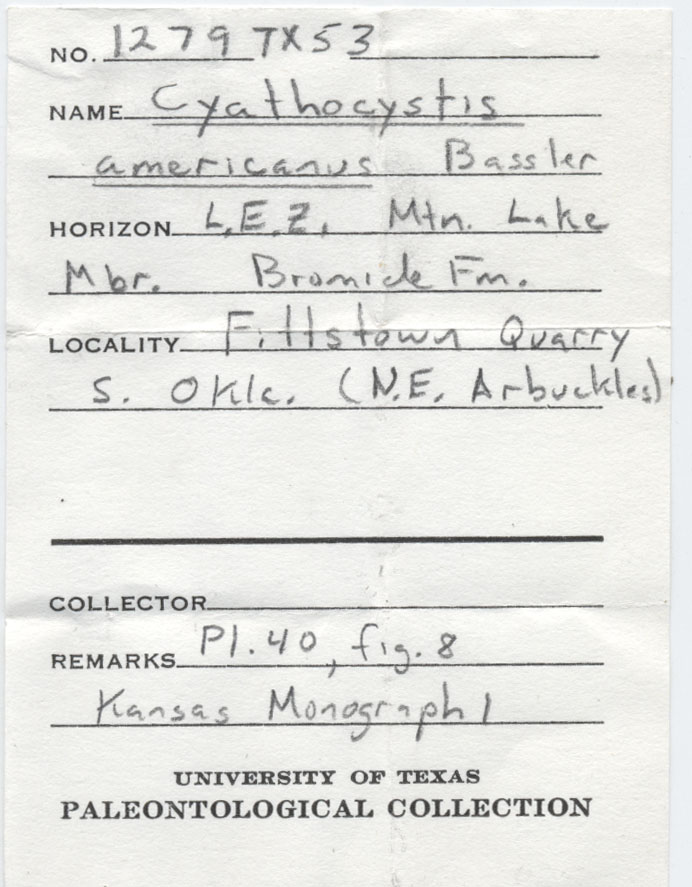 NO. 1279TX53
NAME Cyathocystis
americanus Bassler
HORIZON L.E.Z. Mtn. Lake
Mbr. Bromide Fm.
LOCALITY Fittstown Quarry
S. Okla. (N.E. Arbuckles)
COLLECTOR
REMARKS Pl. 40, fig. 8
Kansas Monograph 1
UNIVERSITY OF TEXAS
PALEONTOLOGICAL COLLECTION